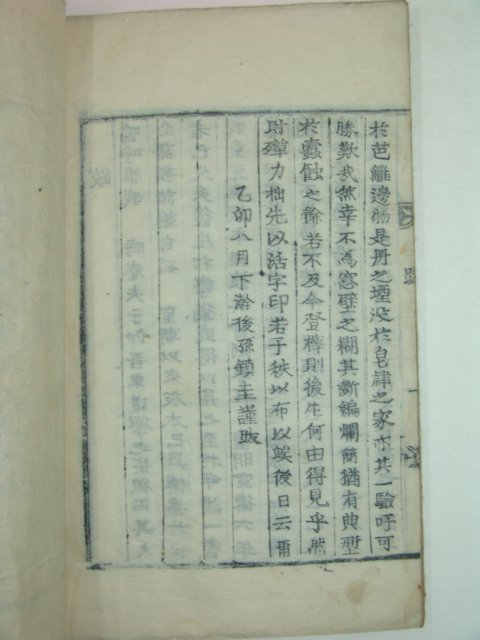 於芭籬邊物是冊之堙没於皂肆之家亦其一驗呼可
勝歎哉然幸不爲窓壁之糊其斷編爛簡猶有典型
於蠹蝕之餘若不及今登梓則後生何由得見乎然
財殫力拙先以活字印若干秩以布以竢後日云爾
乙卯八月下澣後孫鎮圭謹跋
跋